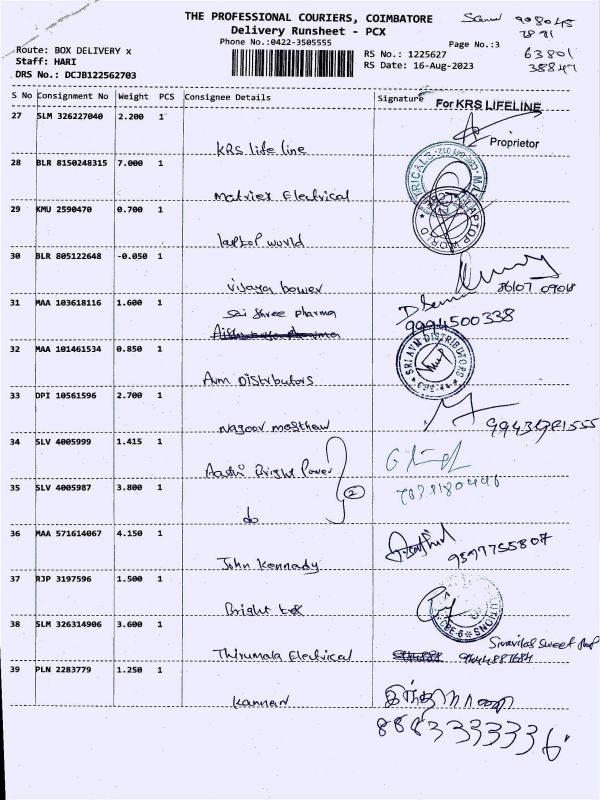 THE PROFESSIONAL COURIERS, COIMBATORE
Delivery Runsheet - PCX
Phone No.:0422-3505555
Page No.:3
63801
38847
Route: BOX DELIVERY x
Staff: HARI
DRS No.: DCJB122562703
RS No.: 1225627
RS Date: 16-Aug-2023
S No Consignment No Weight PCS Consignee Details Signature
For KRS LIFELINE
Proprietor
27 SLM 326227040 2.200 1
KRS life line
28 BLR 8150248315 7.000 1
Matriex Electrical
29 KMU 2590470 0.700 1
laptop world
LAPTOP WORLD
30 BLR 805122648 -0.050 1
vijaya bower
31 MAA 103618116 1.600 1
Sai Shree pharma
9994500338
32 MAA 101461534 0.850 1
Avm Distributors
SRI AVM DISTRIBUTORS
33 DPI 10561596 2.700 1
34 SLV 4005999 1.415 1
Aasthi Bright Power
35 SLV 4005987 3.800 1
do
2
36 MAA 571614067 4.150 1
John Kennady
9597755807
37 RJP 3197596 1.500 1
Bright
38 SLM 326314906 3.600 1
Thirumala Electrical
39 PLN 2283779 1.250 1
Kannan